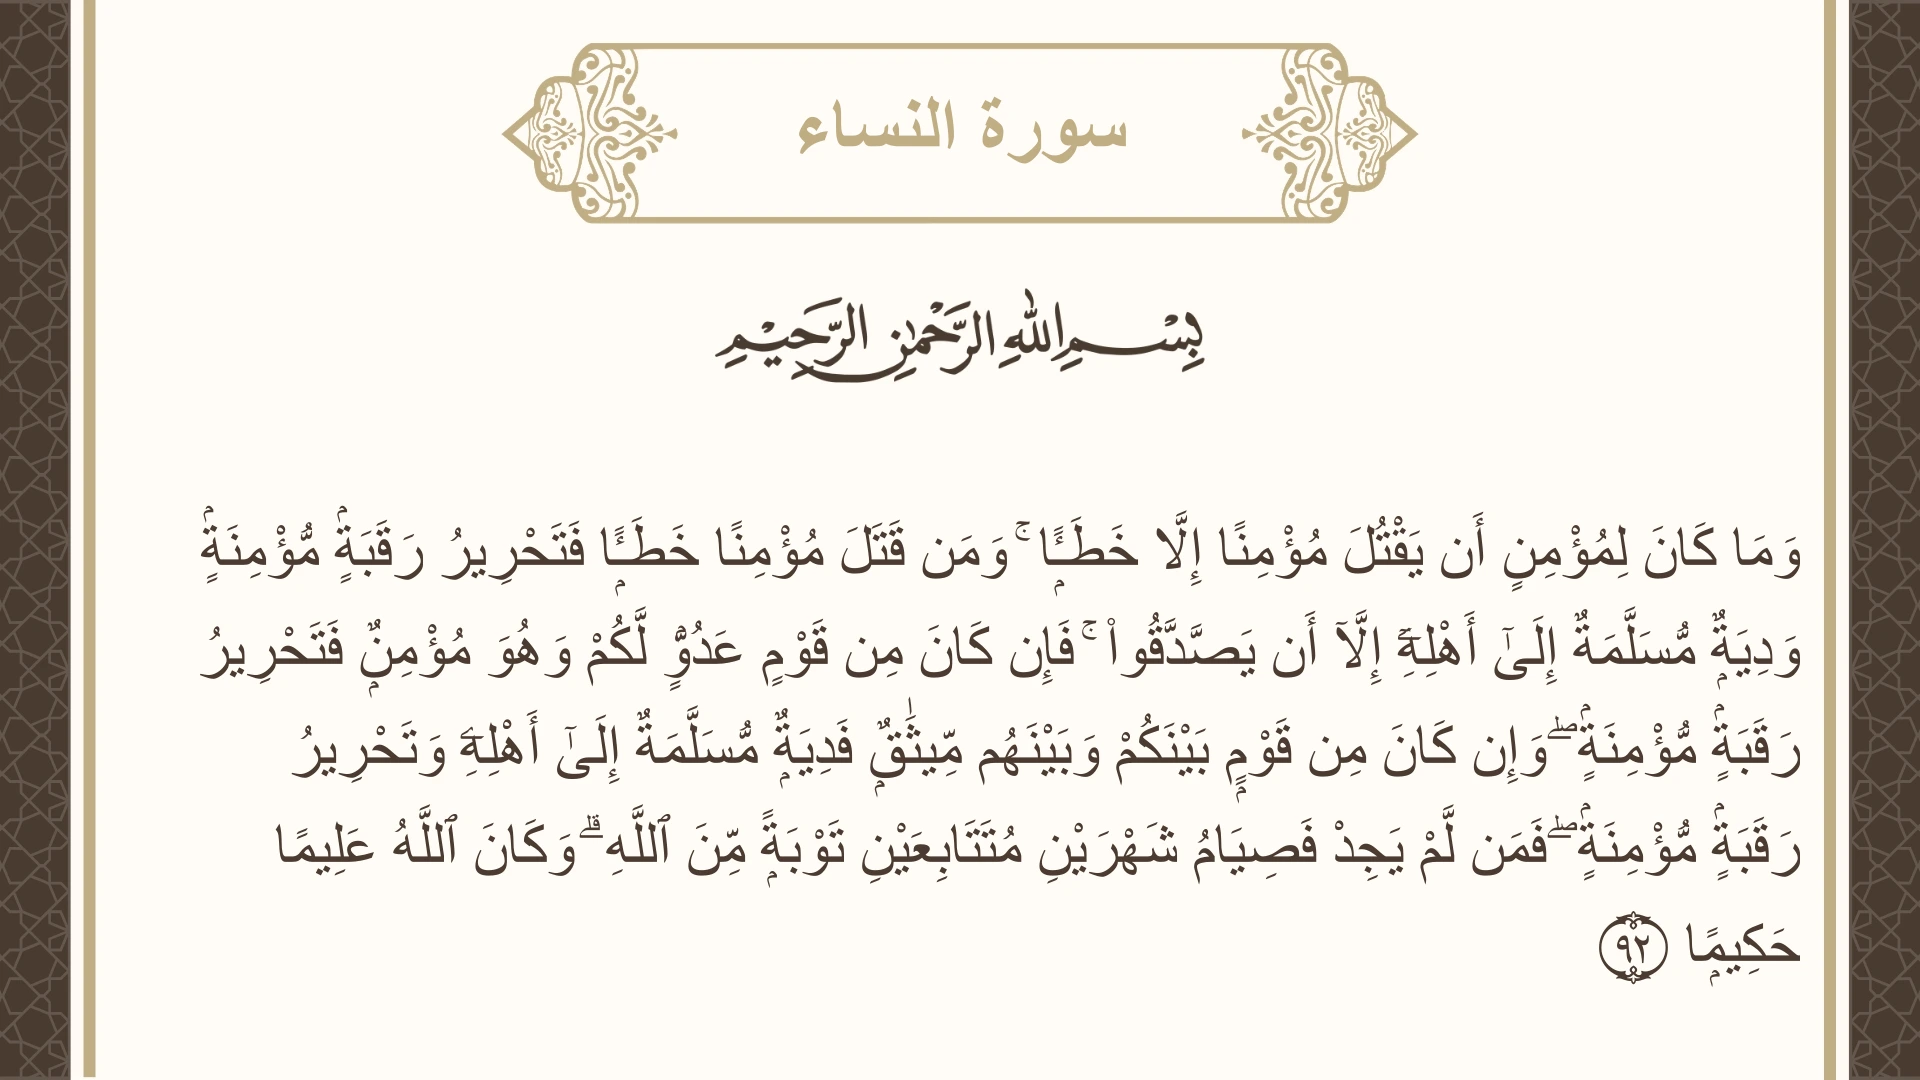 سورة النساء
بِسْمِ اللهِ الرَّحْمٰنِ الرَّحِيْمِ
وَمَا كَانَ لِمُؤْمِنٍ أَن يَقْتُلَ مُؤْمِنًا إِلَّا خَطَـًٔاۭ ۚ وَمَن قَتَلَ مُؤْمِنًا خَطَـًٔاۭ فَتَحْرِيرُ رَقَبَةٍۢ مُّؤْمِنَةٍۢ
وَدِيَةٌۭ مُّسَلَّمَةٌ إِلَىٰٓ أَهْلِهِۦٓ إِلَّآ أَن يَصَّدَّقُوا۟ ۚ فَإِن كَانَ مِن قَوْمٍ عَدُوٍّۢ لَّكُمْ وَهُوَ مُؤْمِنٌۭ فَتَحْرِيرُ
رَقَبَةٍۢ مُّؤْمِنَةٍۢ ۖ وَإِن كَانَ مِن قَوْمٍۭ بَيْنَكُمْ وَبَيْنَهُم مِّيثَٰقٌۭ فَدِيَةٌۭ مُّسَلَّمَةٌ إِلَىٰٓ أَهْلِهِۦ وَتَحْرِيرُ
رَقَبَةٍۢ مُّؤْمِنَةٍۢ ۖ فَمَن لَّمْ يَجِدْ فَصِيَامُ شَهْرَيْنِ مُتَتَابِعَيْنِ تَوْبَةًۭ مِّنَ ٱللَّهِ ۗ وَكَانَ ٱللَّهُ عَلِيمًا
حَكِيمًۭا ٩٢